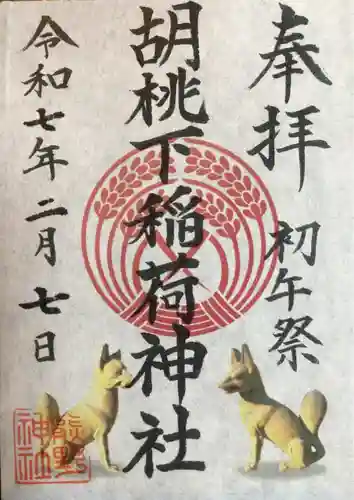 奉拝
初午祭
胡桃下稲荷神社
令和七年二月七日
熊野
神社